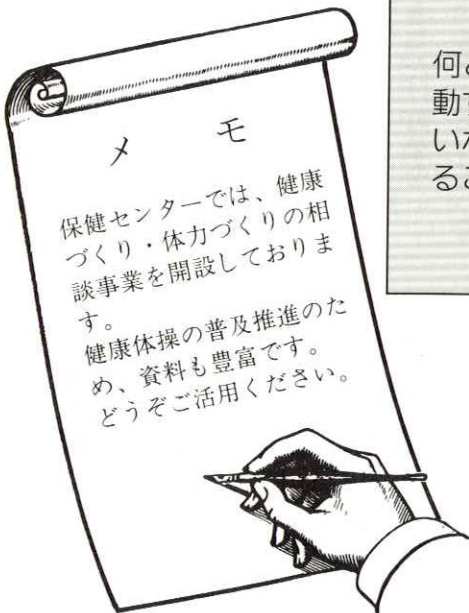 メモ
保健センターでは、健康
づくり・体力づくりの相
談事業を開設しておりま
す。
健康体操の普及推進のた
め、資料も豊富です。
どうぞご活用ください。
何
動す
いか
るこ